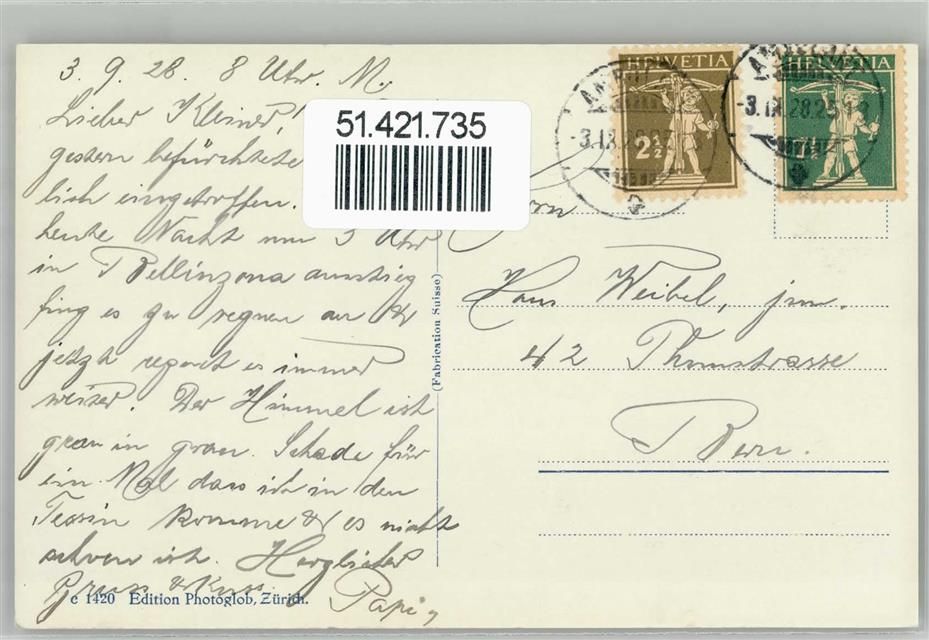 3. 9. 28. 8 Uhr. M.
Lieber Kleiner!
gestern befürchtete
lich eingetroffen.
heute Nacht um 3 Uhr
in Bellinzona ausstieg
fing es zu regnen an &
jetzt regnet es immer
weiter. Der Himmel ist
grau in grau. Schade für
ein Mal dass ich in den
Tessin komme & es nicht
schoen ist. Herzlicher
Gruss & Kuss.
Papi
c 1420 Edition Photoglob, Zürich.
(Fabrication Suisse)
51.421.735
HELVETIA
2 1/2
-3.IX.28.
HELVETIA
7 1/2
-3.IX.28.
Hans Weibel, jun.
42 Thunstrasse
Bern.